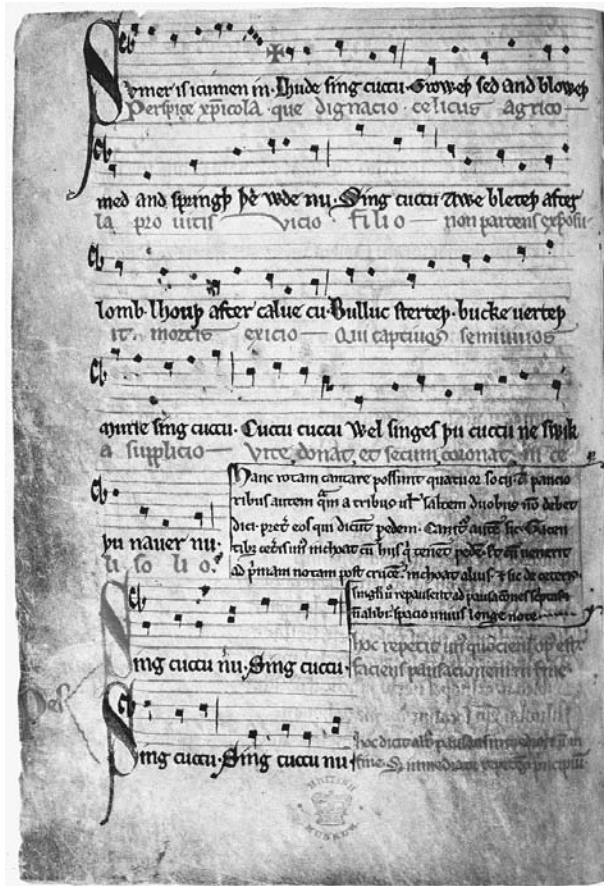 Svmer is icumen in. Lhude sing cuccu. Groweþ sed and bloweþ
Perspice xp̄icola . que dignacio . celicus agrico
med and springþ þe wde nu. Sing cuccu Awe bleteþ after
la pro uitis vicio filio non parcens exposu
lomb. lhouþ after calue cu. Bulluc sterteþ. bucke uerteþ
it mortis exicio Qui captiuos semiuiuos
Murie sing cuccu. Cuccu cuccu Wel singes þu cuccu ne swik
a supplicio Vite donat et secum coronat in ce
þu nauer nu.
li so lio.
Hanc rotam cantare possunt quatuor socij. A paucio
ribus autem quam a tribus uel saltem duobus non debet
dici. preter eos qui dicunt pedem. Canitur autem sic. Tacen
tibus ceteris unus inchoat cum hiis qui tenent pedem. Et cum uenerit
ad primam notam post crucem. inchoat alius. et sic de ceteris.
singuli uero repausent ad pausaciones scriptas
non alibi. spacio unius longe note.
Sing cuccu nu. Sing cuccu.
hoc repetit unus quociens opus est.
faciens pausacionem in fine.
Pes
Sing cuccu. Sing cuccu nu
hoc dicit alius pausans in medio et non in
fine. Sed inmediate repetens principium.
BRITISH
MUSEUM